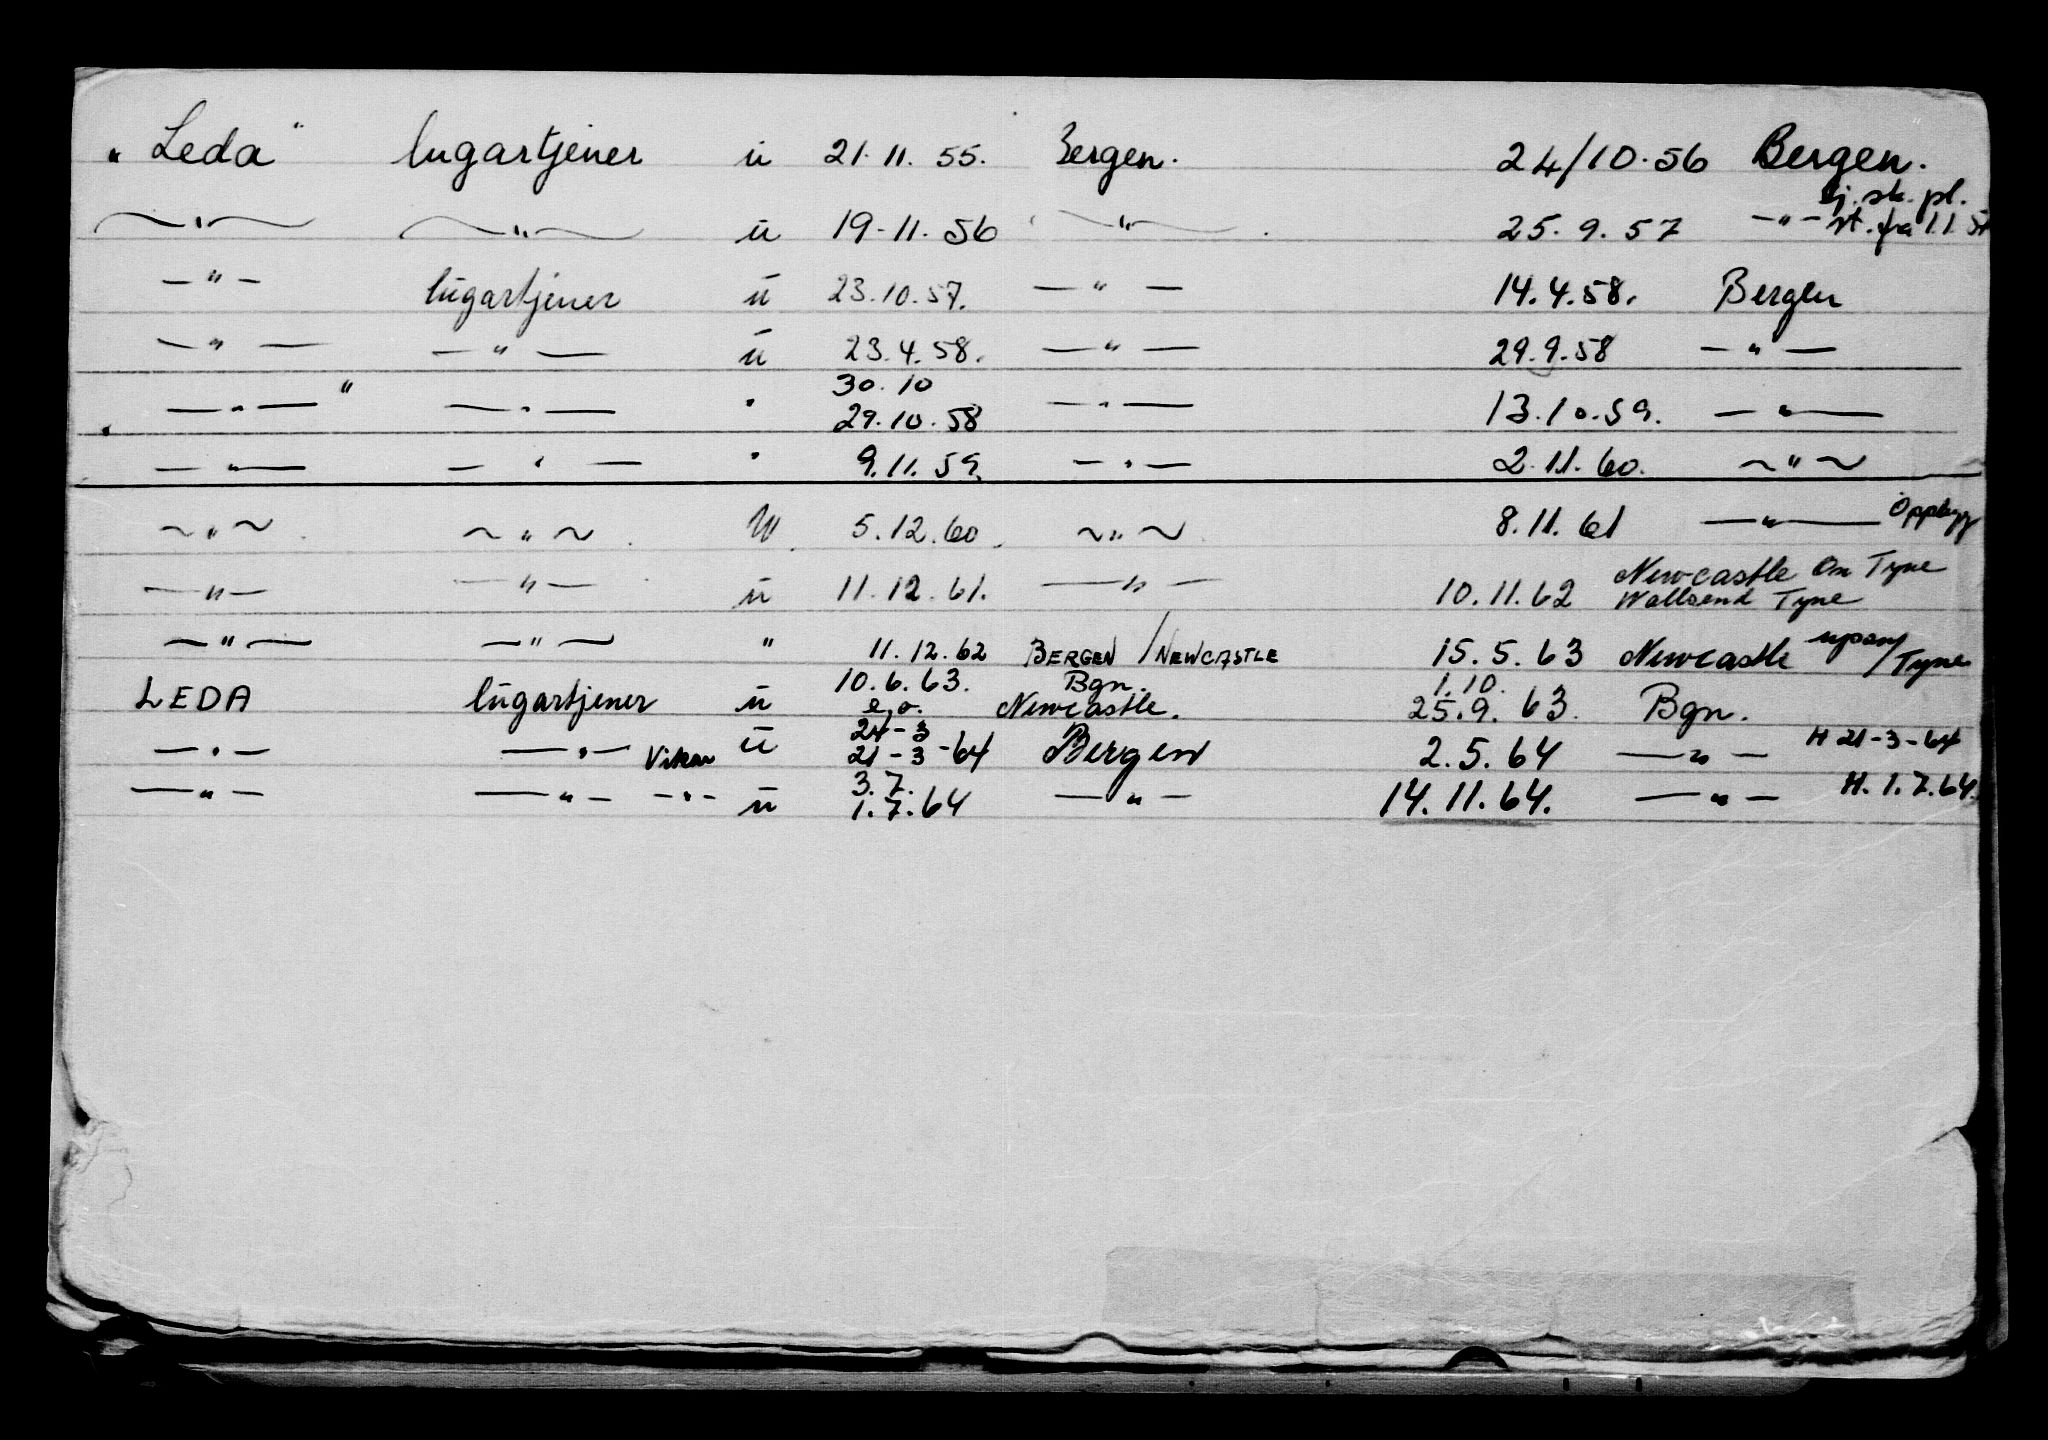 "Leda" lugartjener u 21.11.55. Bergen. 24/10.56 Bergen.
ej. sk. pl.
—"— —"— u 19-11.56 —"— 25.9.57 —"— st. fra 1.1.
—"— lugartjener u 23.10.57. —"— 14.4.58. Bergen
—"— —"— u 23.4.58. —"— 29.9.58 —"—
30.10
—"— —"— " 29.10.58 —"— 13.10.59. —"—
—"— —"— " 9.11.59. —"— 2.11.60. —"—
~"~ ~"~ u 5.12.60. ~"~ 8.11.61 —"— Oppbygg
Newcastle On Tyne
—"— —"— u 11.12.61. —"— 10.11.62 Wallsend Tyne
—"— —"— " 11.12.62 BERGEN/NEWCASTLE 15.5.63 Newcastle upon/Tyne
10.6.63. Bgn. 1.10.
LEDA lugartjener u e.o. Newcastle. 25.9.63. Bgn.
24-3
—"— —"— Vikar u 21-3-64 Bergen 2.5.64 —"— H 21-3-64
3.7.
—"— —"— —"— u 1.7.64 —"— 14.11.64. —"— H. 1.7.64.